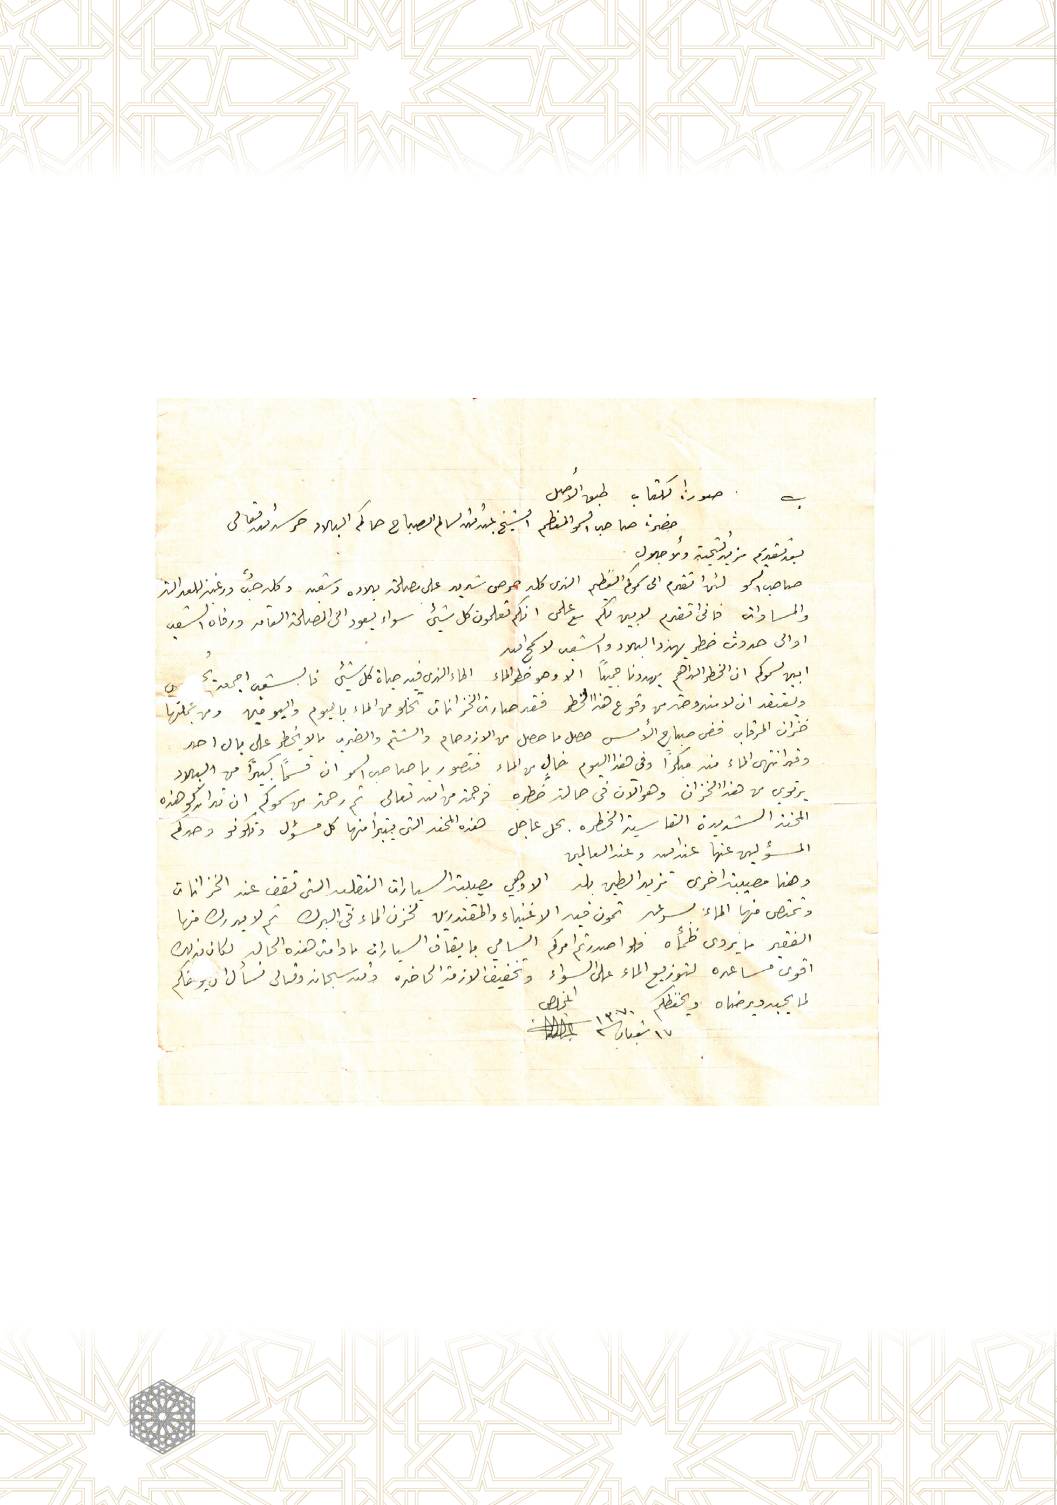 صورة الكتاب طبق الأصل
حضرة صاحب السمو المعظم الشيخ عبدالله السالم الصباح حاكم البلاد حرسه الله تعالى
بعد تقديم مزيد التحية والأجلال
صاحب السمو لئن اتقدم الى سموكم العظيم الذى كله حرص شديد على مصلحة بلاده وشعبه وكله حبًّا ورغبة للعدالة
والمساوات فانى اتقدم لابين لكم مع علمى انكم تعلمون كل شيئ سواء يعود الى المصلحة العامه ورفاه الشعب
اوالى حدوث خطر يهدد البلاد والشعب لا سمح الله
ابين لسموكم ان الخطر الداهم يهددنا جميعًا الا وهو خطر الماء الماء الذى فيه حياة كل شيئ فالشعب اجمعه
ويعتقد ان لا مندوحة من وقوع هذا الخطر فقد صارت الخزانات تخلو من الماء باليوم واليومين ومن جملتها
خزان المرقاب ففى صباح الأمس حصل ما حصل من الازدحام والشتم والضرب مالا يخطر على بال احد
وقد انتهى الماء منه مبكرًا وفى هذا اليوم خالٍ من الماء فتصور يا صاحب السمو ان قسمًا كبيرًا من البلاد
يرتوي من هذا الخزان وهو الآن فى حالة خطره فرحمة من الله تعالى ثم رحمة من سموكم ان تداركو هذه
المحنة الشديدة القاسية الخطره بحل عاجل هذه المحنه التى يتبرأ منها كل مسؤل وتكونو وحدكم
المسؤلين عنها عندالله وعند العالمين
وهنا مصيبة اخرى تزيد الطين بله الا وهي مصيبة السيارات النقليه التى تقف عند الخزانات
وتمتص منها الماء بسرعه تمون فيه الاغنياء والمقتدرين لخزن الماء فى البرك ثم لا يدرك منها
الفقير ما يروى ظمأه فلو اصدرتم امركم السامي بايقاف السيارات مادامت هذه الحاله لكان ذلك
اقوى مساعده لتوزيع الماء على السواء وتخفيف الازمة الحاضره والله سبحانه وتعالى نسأل ان يوفقكم
لما يحبه ويرضاه ويحفظكم المخلص
١٦ شعبان سنة ١٣٧٠